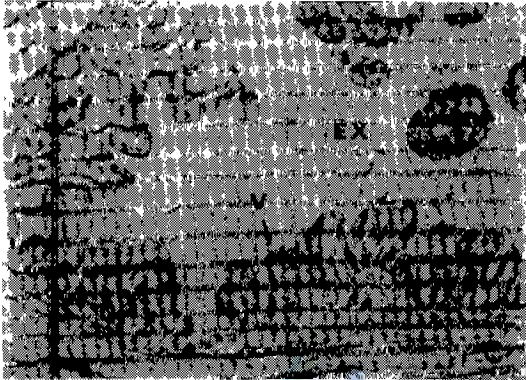 EX
V